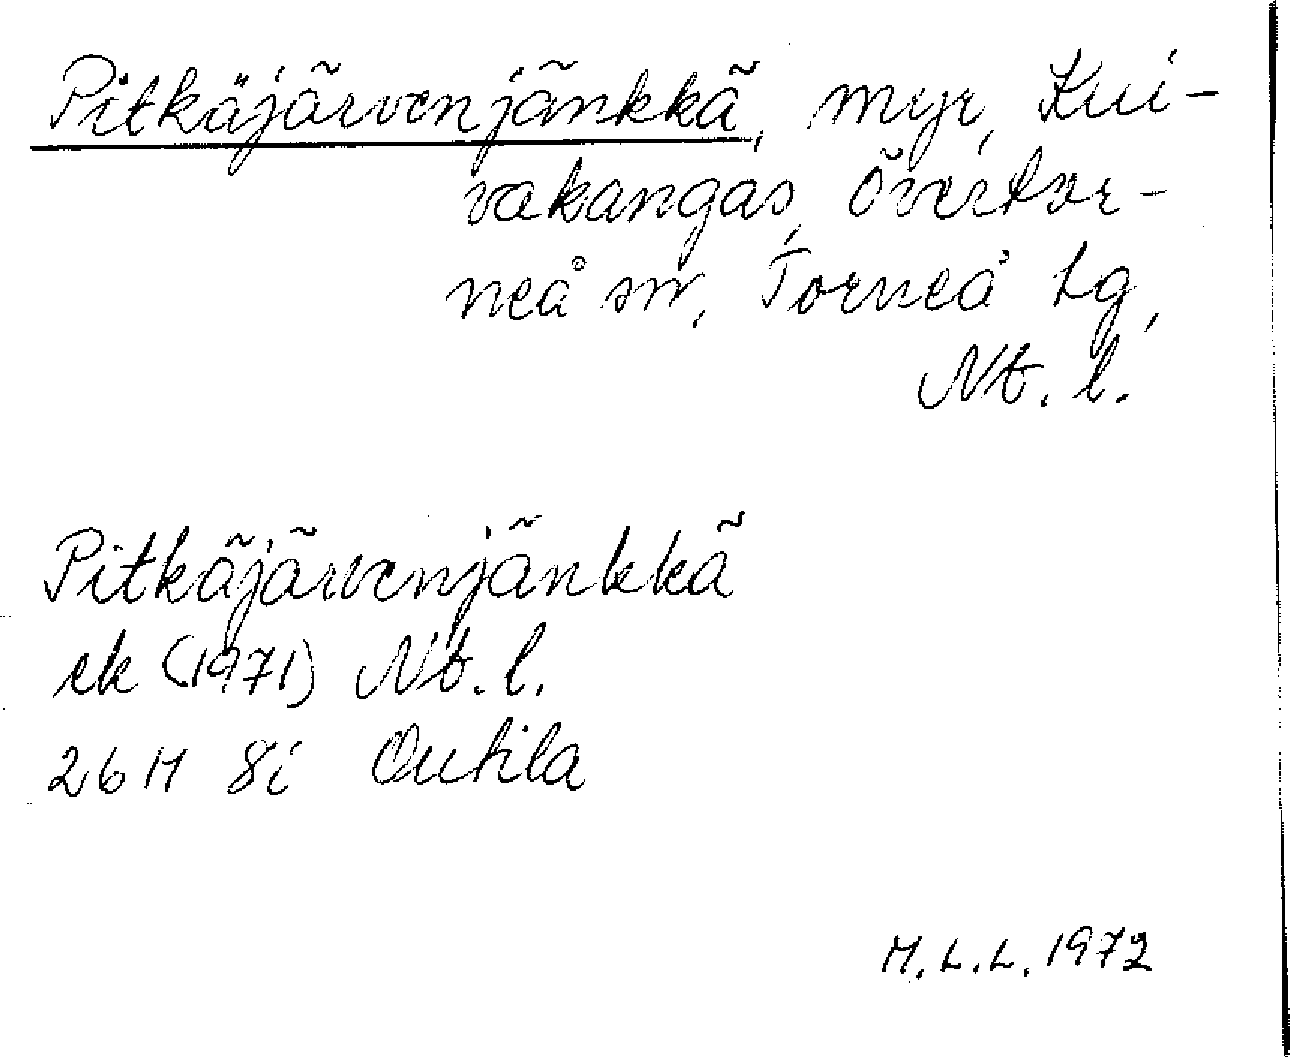 Pitkäjärvenjänkkä, myr, Kui-
vakangas, Övertor-
neå sn, Torneå tg,
Nb. l.
Pitkäjärvenjänkkä
ek (1971) Nb. l.
26 M 8i Outila
M.L.L. 1972